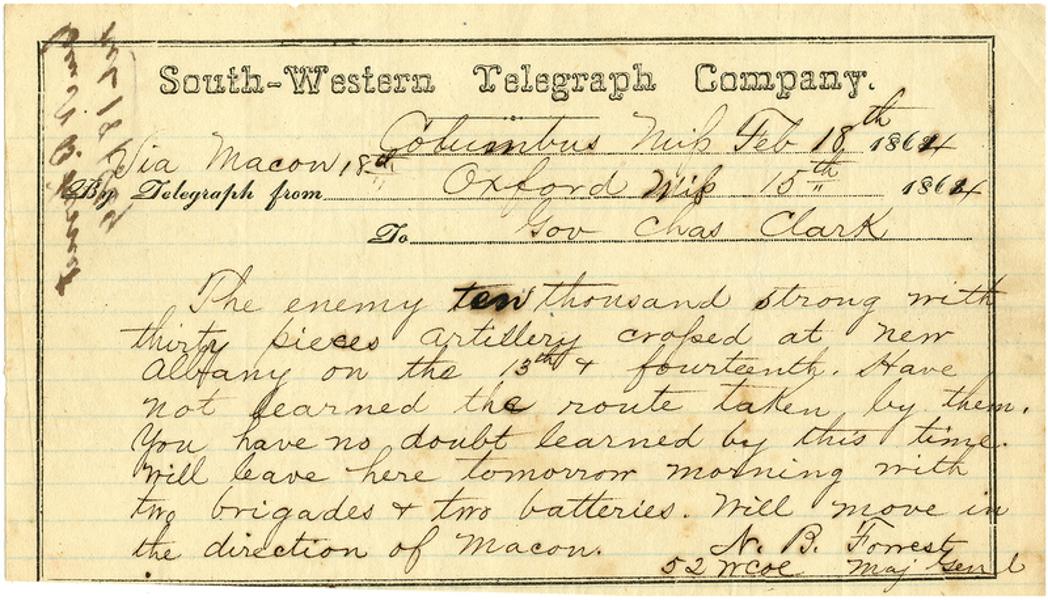 South-Western Telegraph Company.
Columbus Miss Feb 18th 1864
Via Macon 18th
By Telegraph from Oxford Miss 15th 1864
To Gov Chas Clark
The enemy ten thousand strong with
thirty pieces artillery crossed at new
Albany on the 13th & fourteenth. Have
not learned the route taken by them.
You have no doubt learned by this time.
Will leave here tomorrow morning with
two brigades & two batteries. Will move in
the direction of Macon.
N. B. Forrest
52 WCol Maj Genl